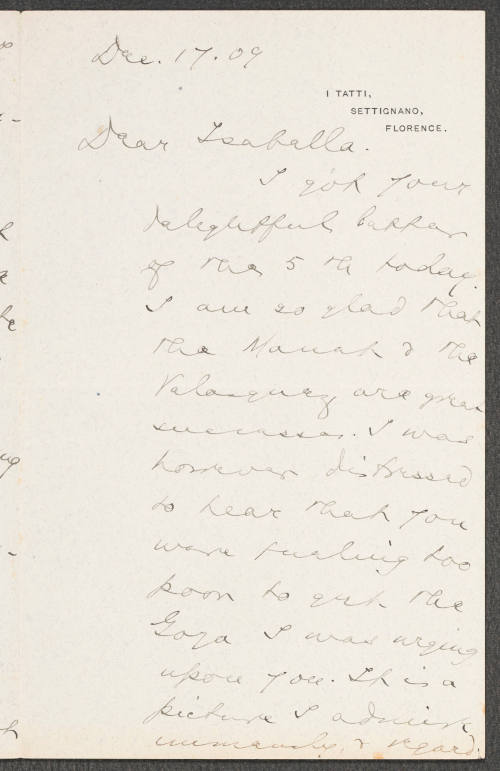 Dec. 17. 09
I TATTI,
SETTIGNANO,
FLORENCE.
Dear Isabella.
I got your
delightful letter
of the 5th today.
I am so glad that
the Manet & the
Velasquez are great
successes. I was
however distressed
to hear that you
were feeling too
poor to get the
Goya I was urging
upon you. It is a
picture I admire
immensely, & regard